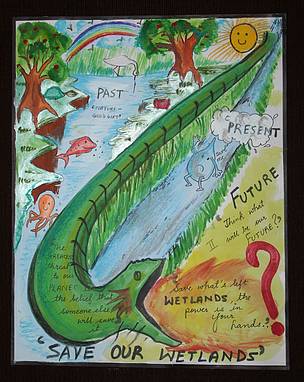 PAST
"NATURE -
GOD'S GIFT"
PRESENT
FUTURE
Think what
will be our
FUTURE?
The
GREATEST
threat
to our
PLANET is
the belief that
someone else
will save
it
Save what's left
WETLANDS the
power is in
your
hands.
?
"SAVE OUR WETLANDS"